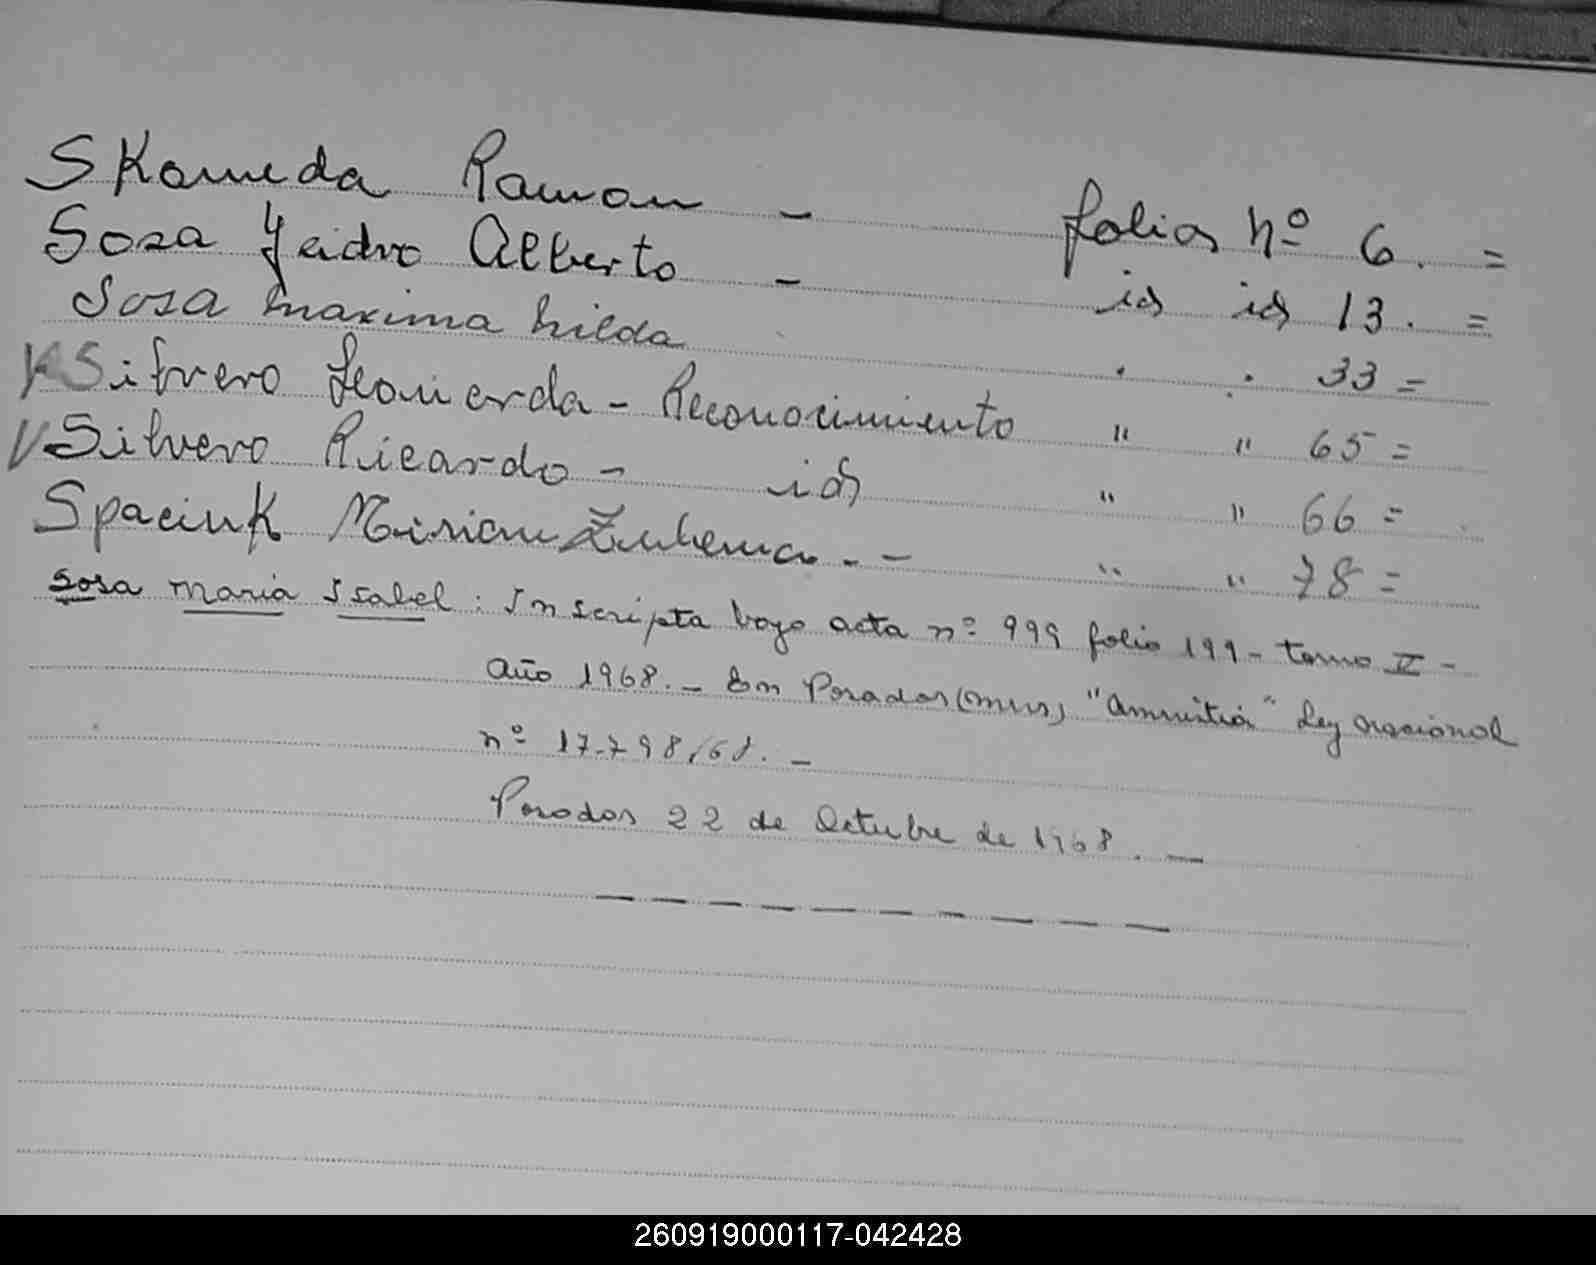 Skameda Ramon - folios nº 6. =
Sosa Ysidro Alberto - id id 13. =
Sosa maxima hilda . . 33 =
Silvero Leonarda - Reconocimiento " " 65 =
Silvero Ricardo - id " " 66 =
Spaciuk Mirian Zulema - - " " 78 =
Sosa Maria Isabel : Inscripta bajo acta nº 999 folio 199 - tomo V -
Año 1968. - En Posadas (mnes) "Amnistia" Ley nacional
nº 17.798/68. -
Posadas 22 de Octubre de 1968. -
260919000117-042428